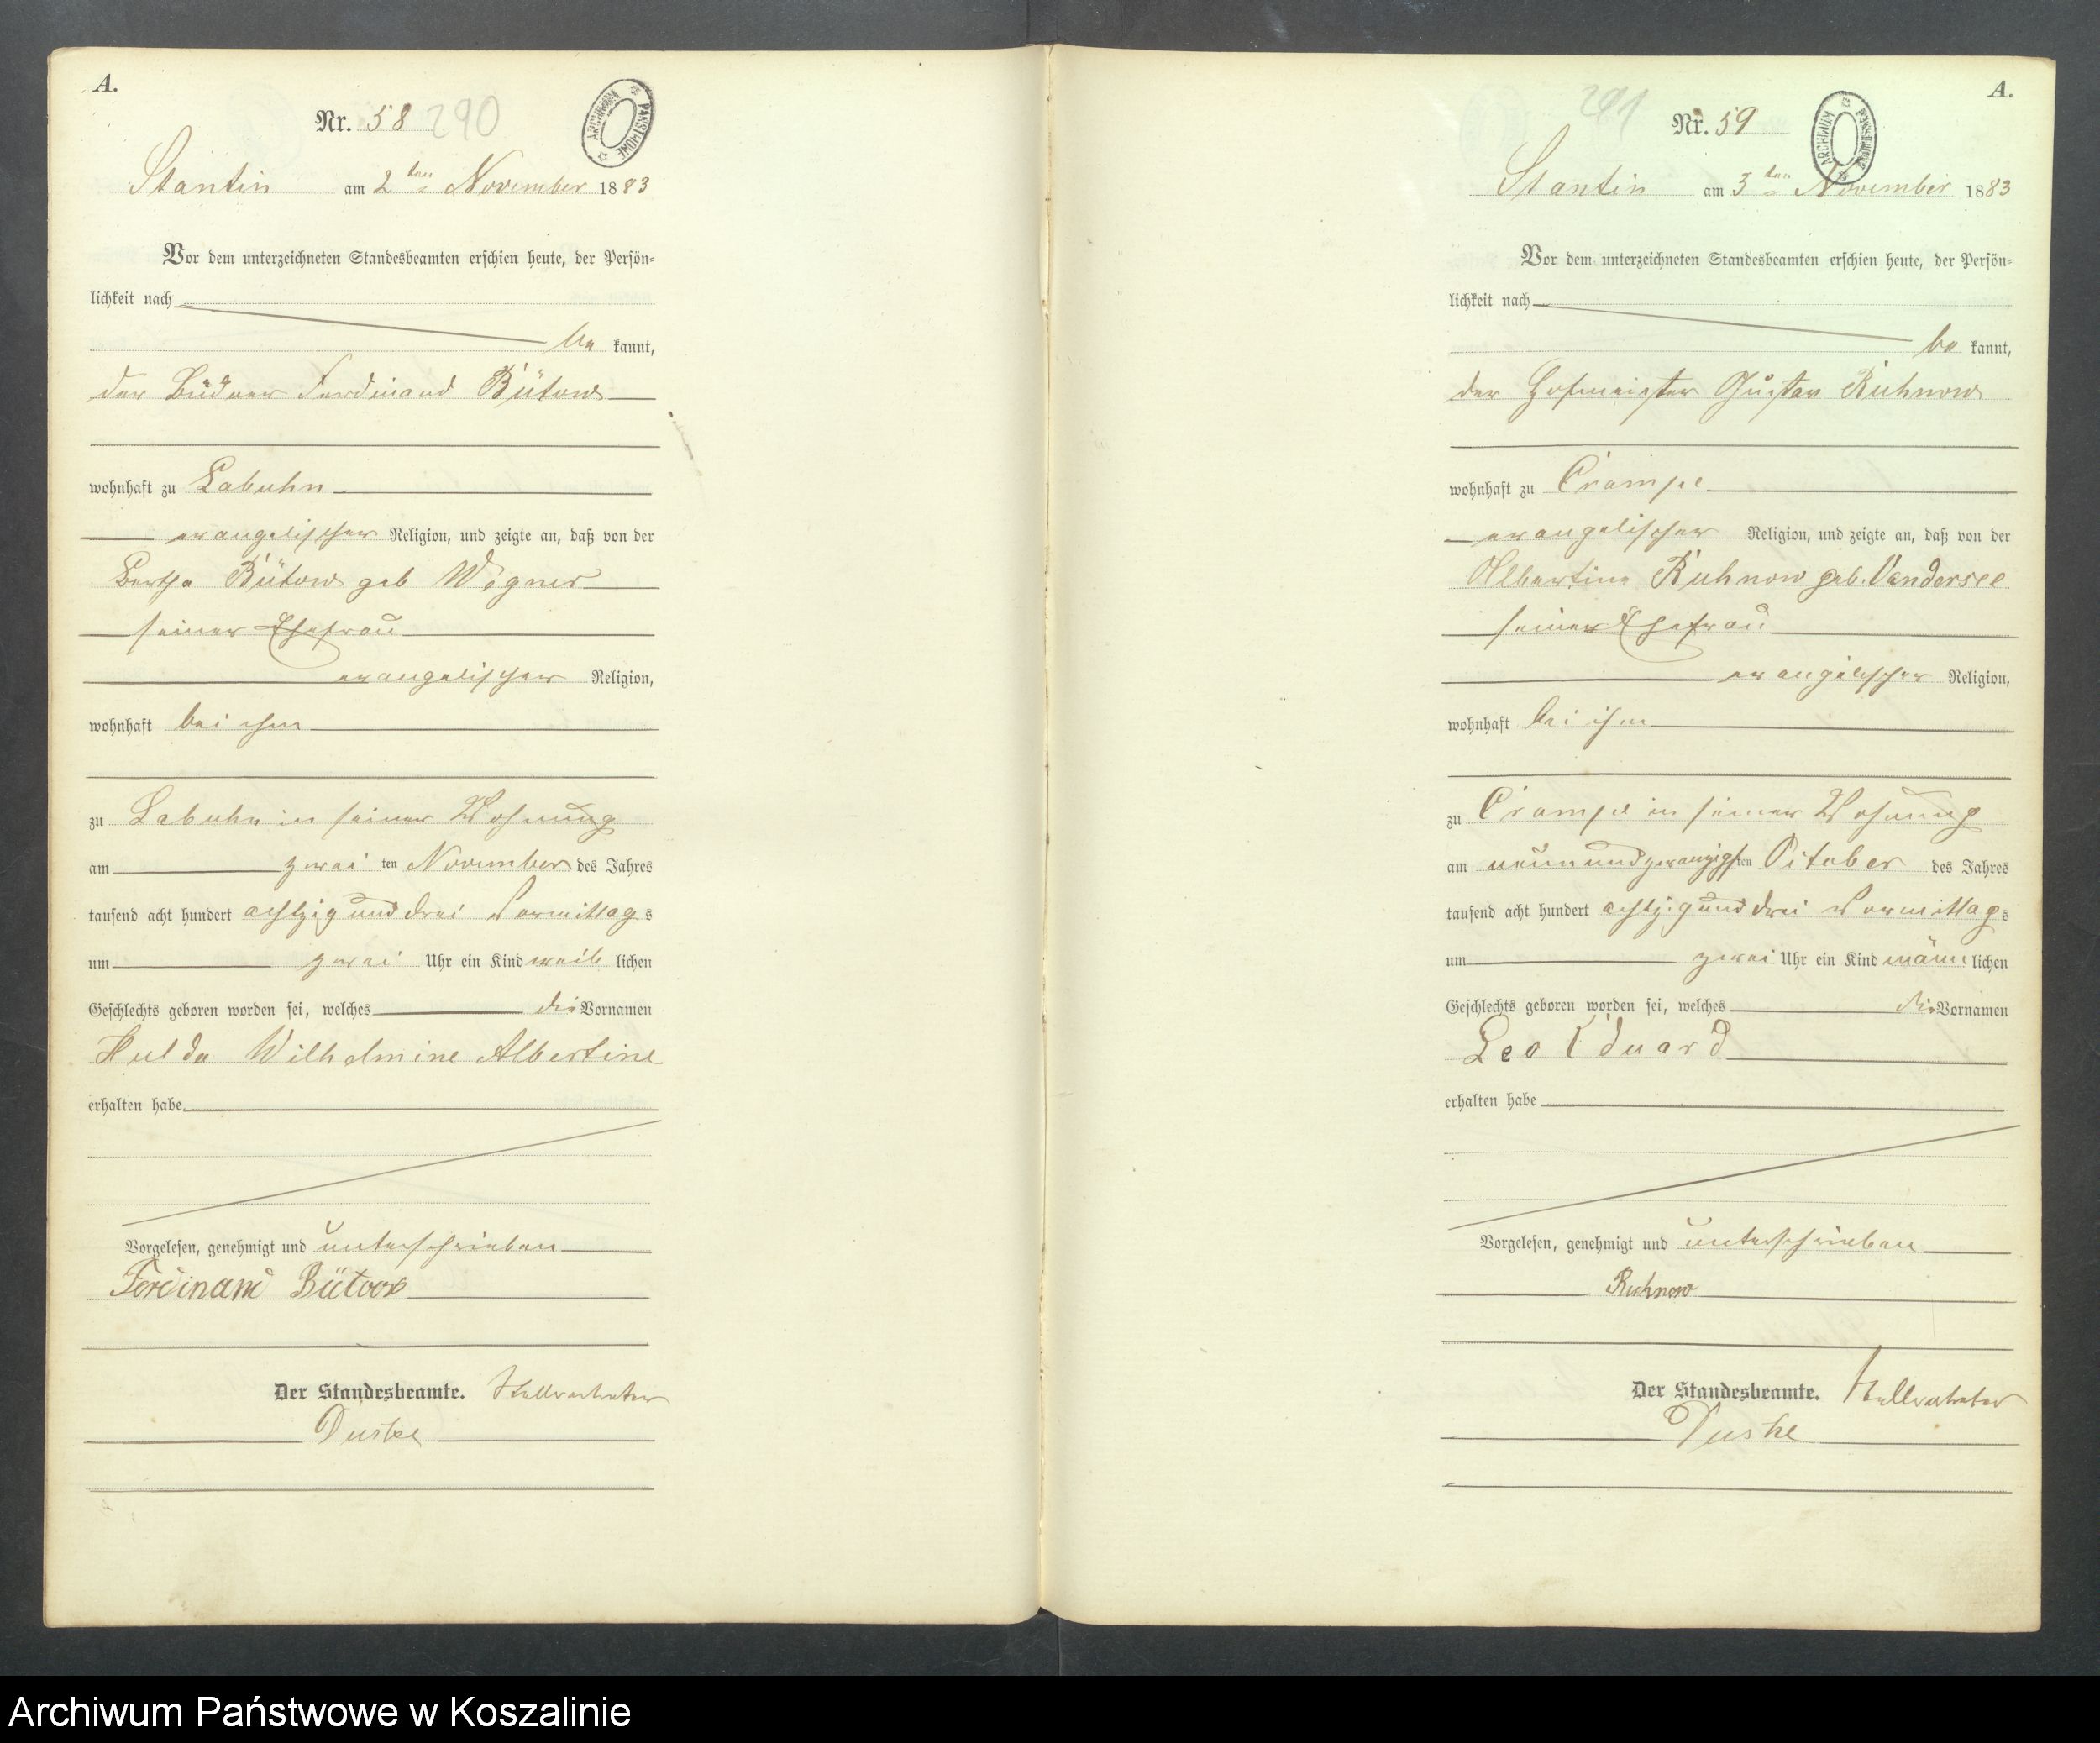 A.
Nr. 58 290
ARCHIWUM PAŃSTWOWE
Stantin am 2ten November 1883
Vor dem unterzeichneten Standesbeamten erschien heute, der Persön-
lichkeit nach
be kannt,
der Büdner Ferdinand Bütow
wohnhaft zu Labuhn
evangelischer Religion, und zeigte an, daß von der
Bertha Bütow geb Wegner
seiner Ehefrau
evangelischer Religion,
wohnhaft bei ihm
zu Labuhn in seiner Wohnung
am zwei ten November des Jahres
tausend acht hundert achtzig und drei Vormittag s
um zwei Uhr ein Kind weib lichen
Geschlechts geboren worden sei, welches die Vornamen
Hulda Wilhelmine Albertine
erhalten habe
Vorgelesen, genehmigt und unterschrieben
Ferdinand Bütow
Der Standesbeamte. Stellvertreter
A.
291
Nr. 59
ARCHIWUM PAŃSTWOWE
Stantin am 3ten November 1883
Vor dem unterzeichneten Standesbeamten erschien heute, der Persön-
lichkeit nach
be kannt,
der Hofmeister Gustav Ruhnow
wohnhaft zu Crampe
evangelischer Religion, und zeigte an, daß von der
Albertine Ruhnow geb. Vandersee
seiner Ehefrau
evangelischer Religion,
wohnhaft bei ihm
zu Crampe in seiner Wohnung
am neunundzwanzigsten October des Jahres
tausend acht hundert achtzig und drei Vormittags
um zwei Uhr ein Kind männ lichen
Geschlechts geboren worden sei, welches die Vornamen
Leo Eduard
erhalten habe
Vorgelesen, genehmigt und unterschrieben
Ruhnow
Der Standesbeamte. Stellvertreter
Archiwum Państwowe w Koszalinie